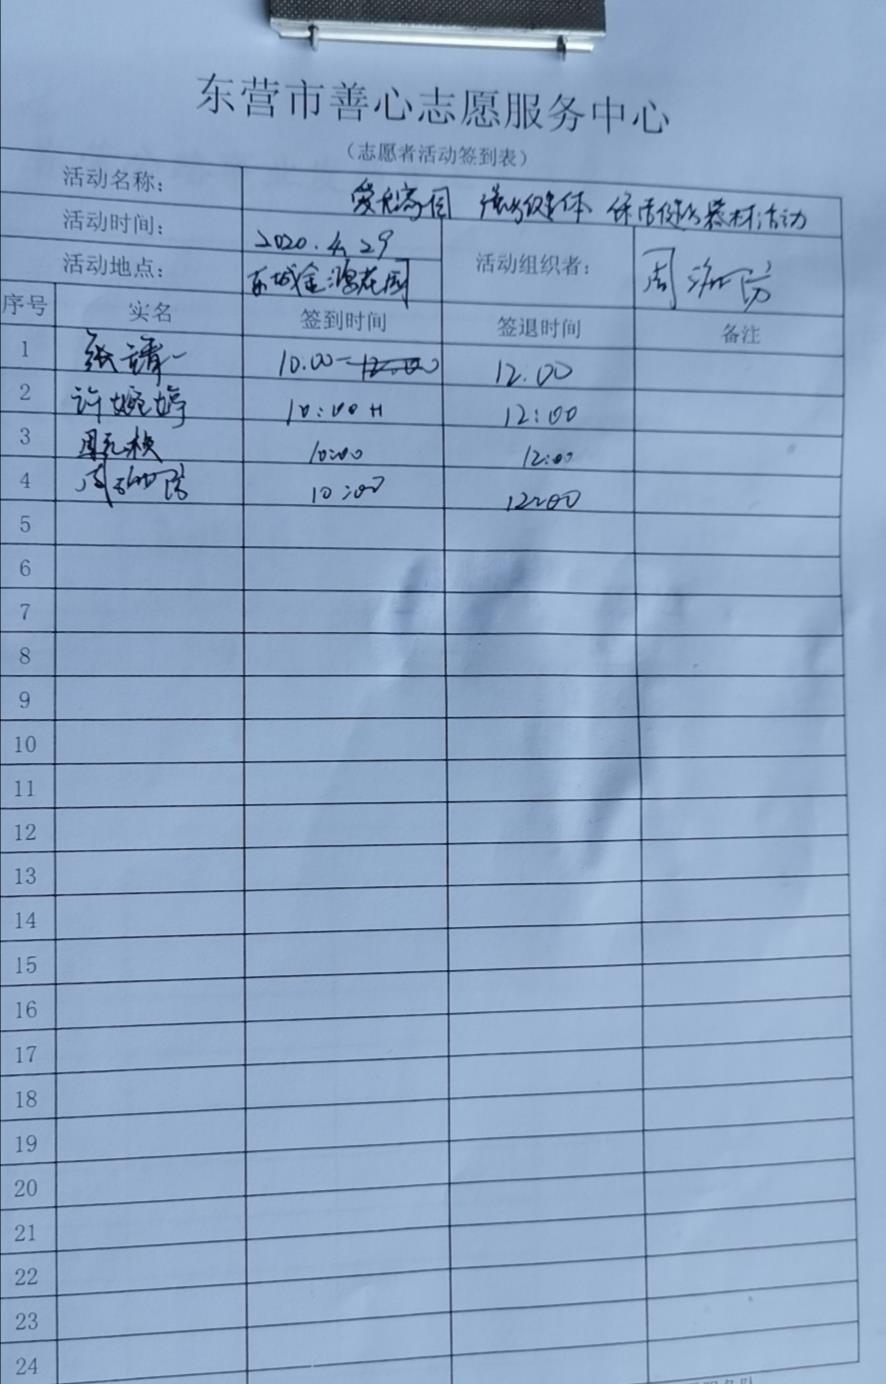 东营市善心志愿服务中心
（志愿者活动签到表）
活动名称： 强身健体 保洁健身器材活动
活动时间： 2020.4.29 活动组织者： 周
活动地点： 东城金湖花园
序号 实名 签到时间 签退时间 备注
1 张靖一 10.00 12.00
2 许婉婷 10:00 12:00
3 10:00 12:00
4 周 10:00 12:00
5
6
7
8
9
10
11
12
13
14
15
16
17
18
19
20
21
22
23
24